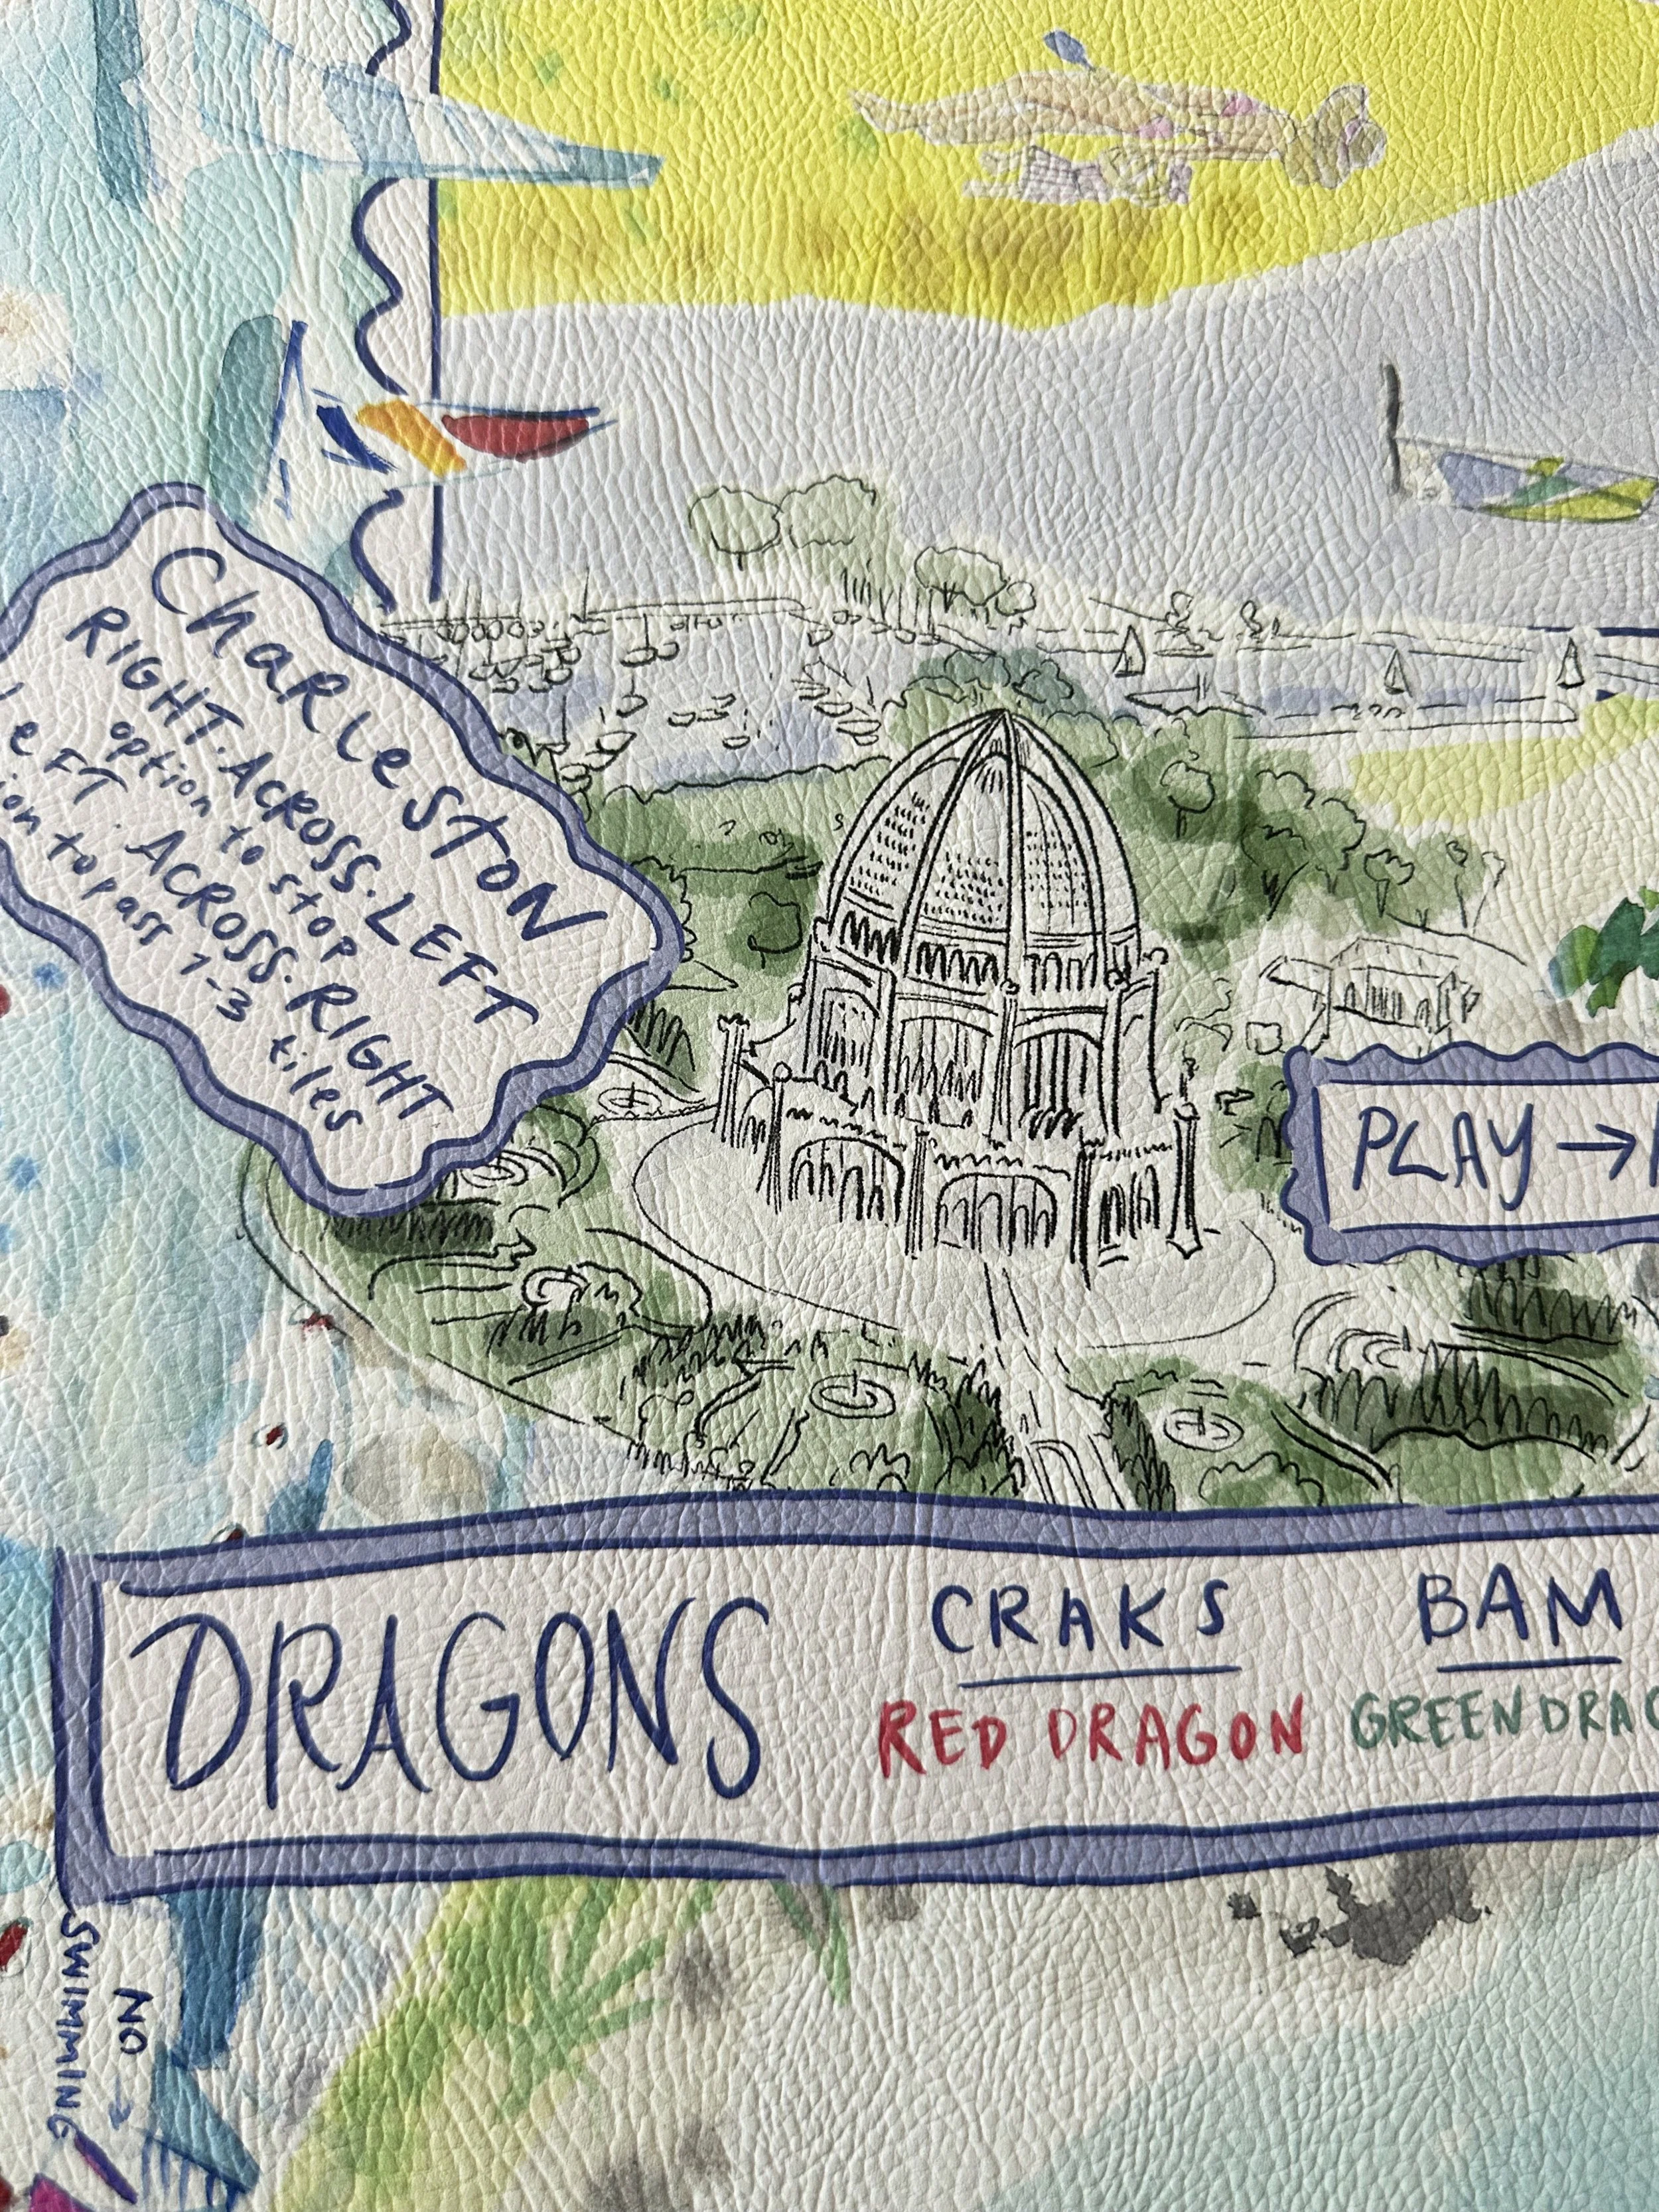 CharLesTON
RIGHT. ACROSS. LEFT
option to stop
LeFT. ACROSS. RIGHT
to pass 1-3 tiles
PLAY →
DRAGONS
CRAKS
BAM
RED DRAGON
GREEN
NO →
SWIMMING